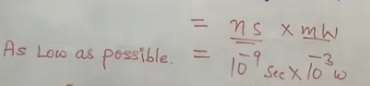 = ns x mW
As Low as possible. = 10⁻⁹ sec x 10⁻³ w